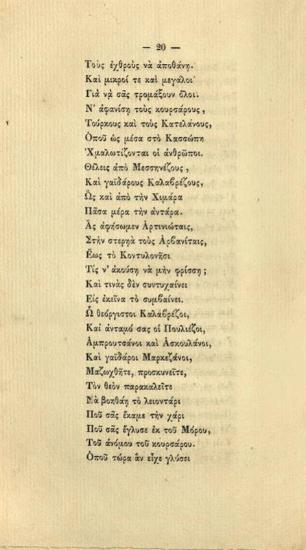 — 20 —
Τοὺς ἐχθροὺς νὰ ἀποθάνῃ.
Καὶ μικροί τε καὶ μεγάλοι
Γιὰ νὰ σᾶς τρομάξουν ὅλοι.
Ν' ἀφανίσῃ τοὺς κουρσάρους,
Τούρκους καὶ τοὺς Κατελάνους,
Ὁποῦ ὡς μέσα στὸ Κασσώπη
Ἀχμαλωτίζονται οἱ ἀνθρῶποι.
Θέλεις ἀπὸ Μεσσηνέζους,
Καὶ γαϊδάρους Καλαβρέζους,
Ὡς καὶ ἀπὸ τὴν Χιμάρα
Πᾶσα μέρα τὴν ἀντάρα.
Ἂς ἀφήσωμεν Ἀρτινιώταις,
Στὴν στερηὰ τοὺς Ἀρβανίταις,
Ἕως τὸ Κοντυλονῆσι
Τίς ν' ἀκούσῃ νὰ μὴν φρίσσῃ;
Καὶ τινὰς δὲν συντυχαίνει
Εἰς ἐκεῖνα τὸ συμβαίνει.
Ὦ θεόργιστοι Καλαβρέζοι,
Καὶ ἀνταμό σας οἱ Πουλιέζοι,
Ἀμπρουτσάνοι καὶ Ἀσκουλάνοι,
Καὶ γαϊδάροι Μαρκεζάνοι,
Μαζωχθῆτε, προσκυνεῖτε,
Τὸν θεὸν παρακαλεῖτε
Νὰ βοηθάῃ τὸ λειοντάρι
Ποῦ σᾶς ἔκαμε τὴν χάρι
Ποῦ σᾶς ἔγλυσε ἐκ τοῦ Μόρου,
Τοῦ ἀνόμου τοῦ κουρσάρου.
Ὁποῦ τώρα ἂν εἶχε γλύσσι